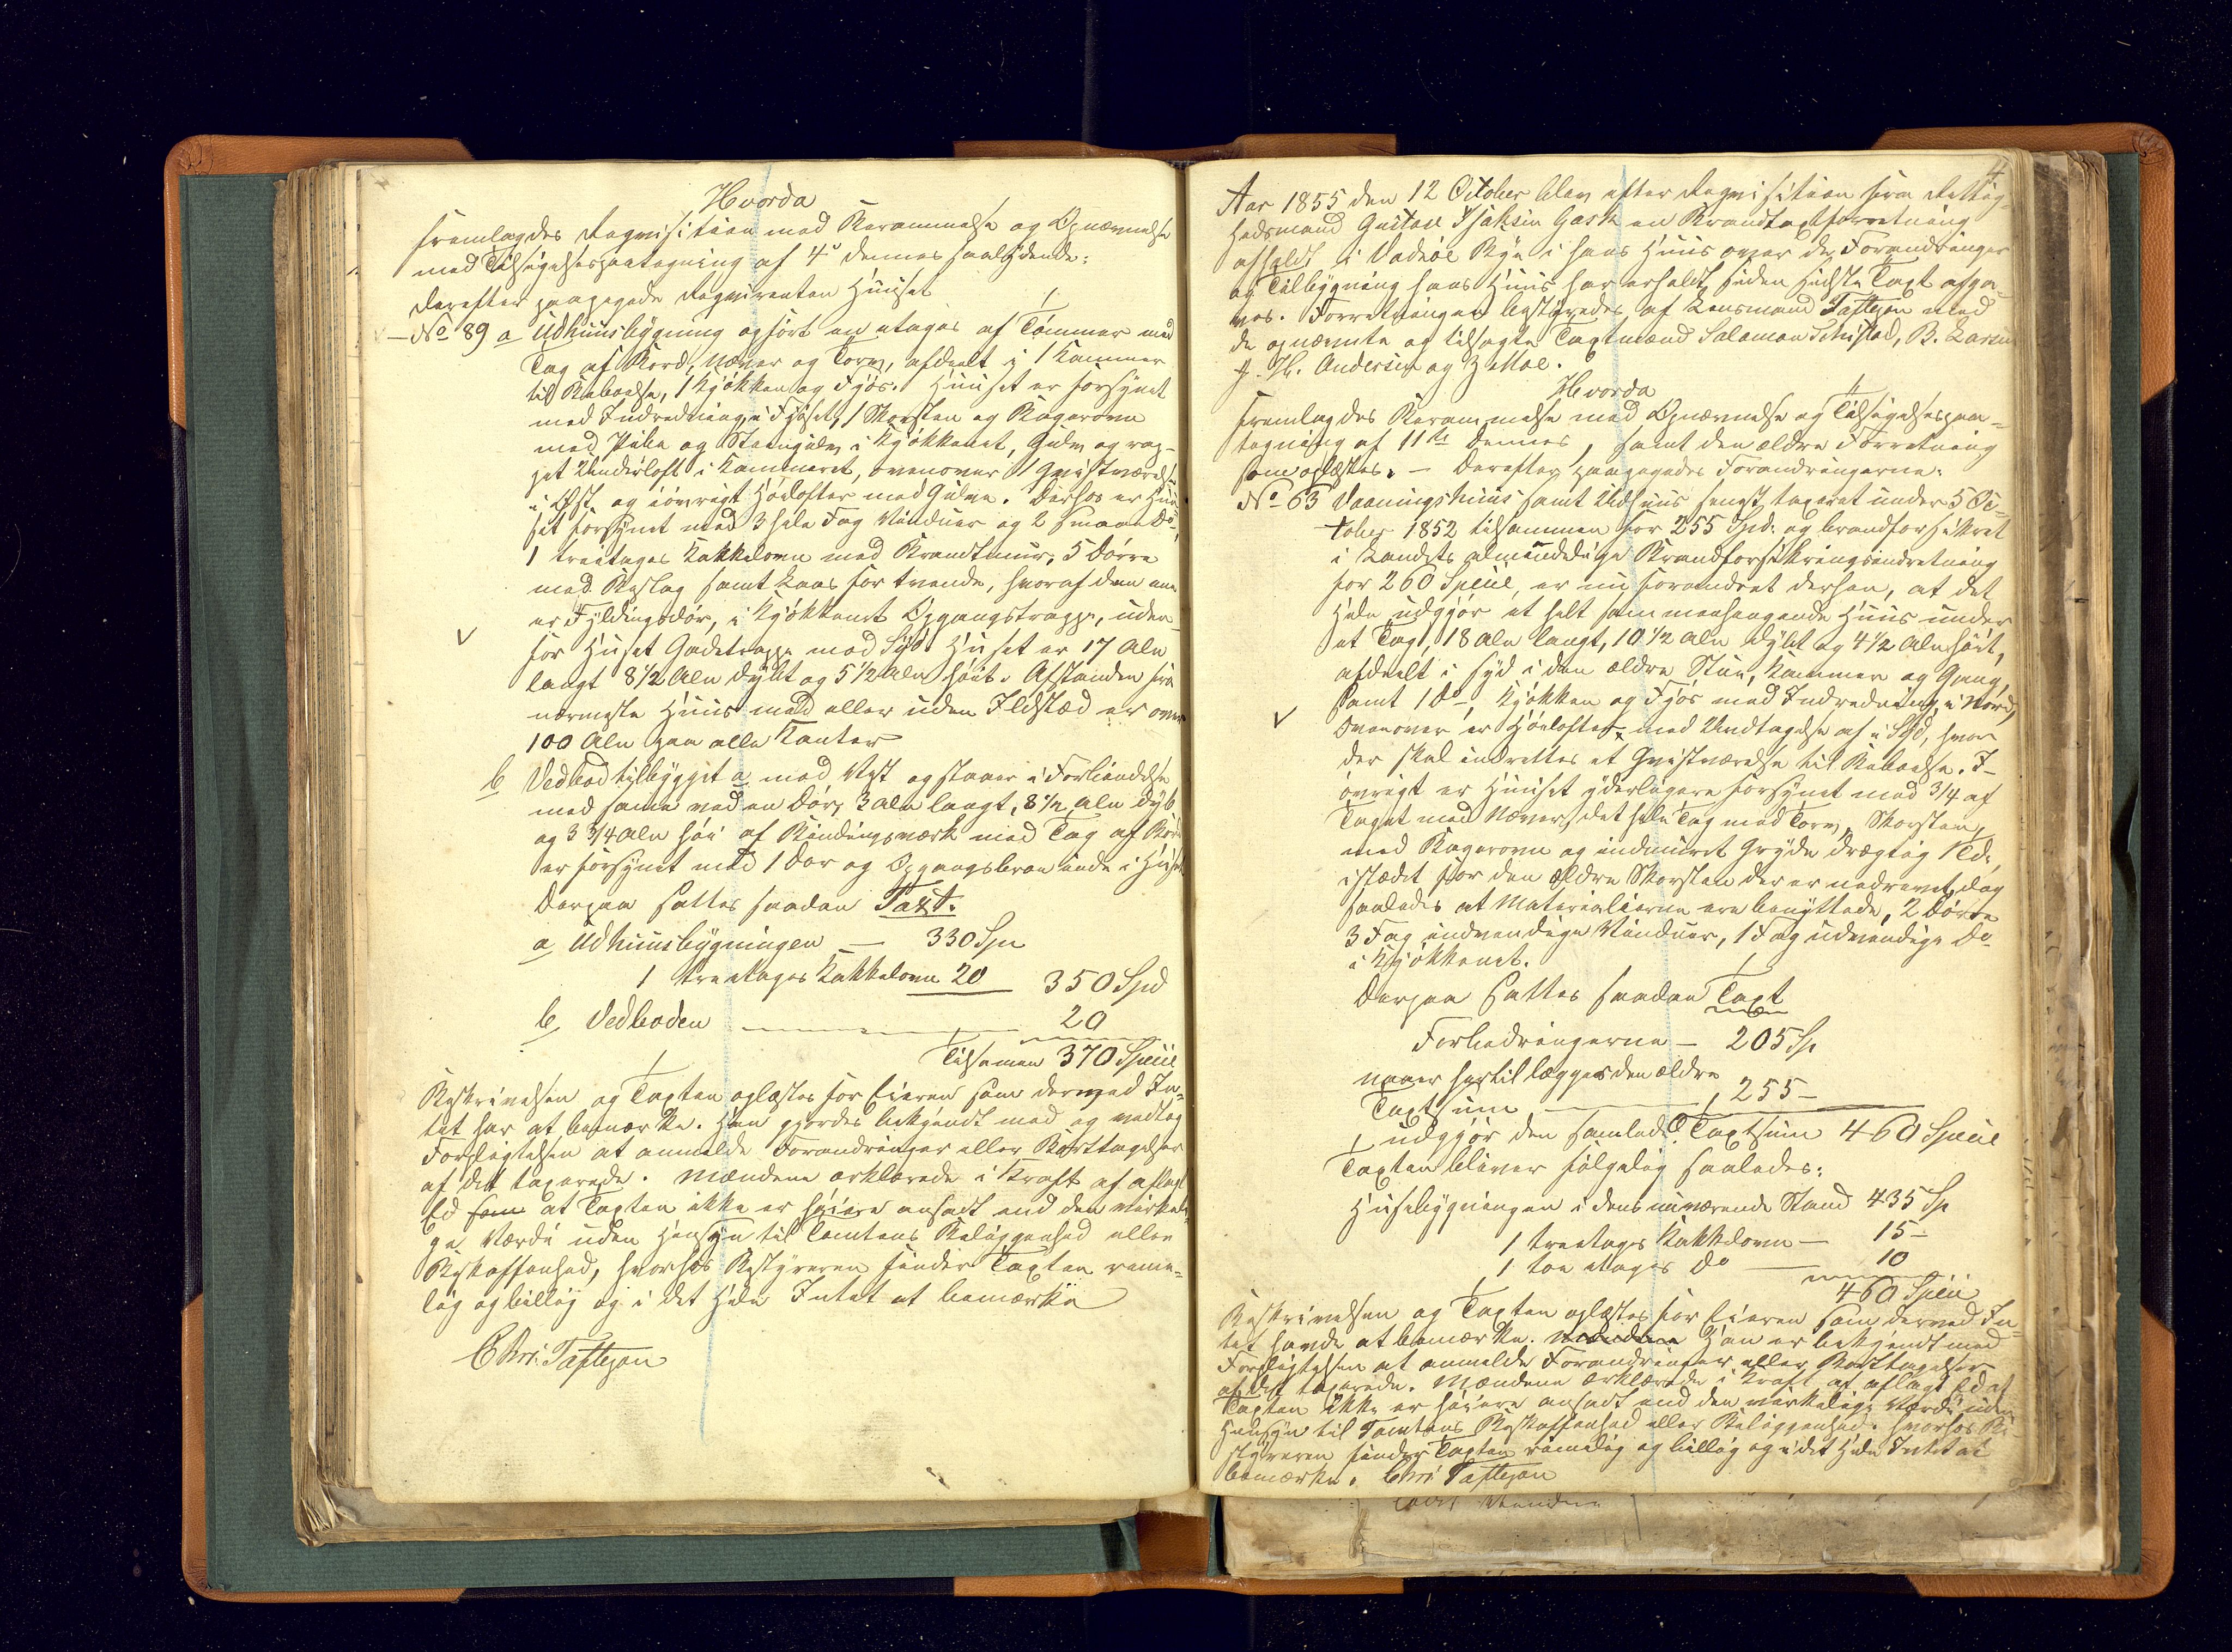 Hvorda
fremlagdes Reqvisition med Berammelse og Opnævnelse
med Tilsigelsespaategning af 4de dennes saalydende:
Derefter paapegede Reqvirenten Huuset
No 89 a Udhuusbygning opført en etages af Tømmer med
Tag af Bord, Næver og Torv, afdeelt i 1 Kammer
til Beboelse, 1 Kjøkken og Fjøs. Huuset er forsynet
med Indredning i Fjøset, 1 Skorsten og Bagerovn
med Pibe og Steengulv i Kjøkkenet, Gulv og
Underloft i Kammeret, ovenover 1 Qvistværelse
i Øst og iøvrigt Høelofter med Gulve. Derhos er Huu-
set forsynet med 3 hele Fag Vinduer og 2 smaae Do,
1 treetages Kakkelovn med Brandtmuur, 5 Dørre
med Beslag samt Laas for tvende, hvoraf den ene
er Fyldingsdør, i Kjøkkenet Opgangstrappe, uden-
for Huset Gadetrappe mod Syd. Huset er 17 Aln
langt 8 1/2 Aln dybt og 5 1/2 Aln høit. Afstanden fra
nærmeste Huus med eller uden Ildsted er over
100 Aln paa alle Kanter
b Vedbod tilbygget a mod Vest og staaer i Forbindelse
med samme ved en Dør, 3 Aln langt, 8 1/2 Aln dyb
og 3 3/4 Aln høi af Bindingsværk med Tag af Bord
er forsynet med 1 Dør og Opgangsbroe inde i Huset
Derpaa sattes saadan Taxt.
a Udhuusbygningen — 330 Spd
1 treetages Kakkelovn 20 350 Spd
b, Vedboden 20
Tilsamen 370 Speciel
Beskrivelsen og Taxten oplæstes for Eieren som dermed In-
tet har at bemærke. Han gjordes bekjendt med og vedtog
Forpligtelsen at anmelde Forandringer eller Borttagelser
af det taxerede. Mændene erklærede i Kraft af aflagt
Ed som at Taxten ikke er høiere ansadt end den virkeli-
ge Værdi uden Hensyn til Tomtens Beliggenhed eller
Beskaffenhed, hvorhos Bestyreren finder Taxten rime-
lig og billig og i det Hele Intet at bemærke
Chri. Taftezon
Aar 1855 den 12 October blev efter Reqvisition fra Rettig-
hedsmand Gustav Isaksen Gask en Brandtaxtforretning
afholdt i Vadsøe Bye i hans Huus over de Forandringer
og Tilbygning hans Huus har erholdt siden sidste Taxt afga-
ves. Forretningen bestyredes af Lensmand Taftezon med
de opnævnte og tilsagte Taxtmænd Salamon Schistad, B. Larsen
J. H. Andersen og Z. Moe.
Hvorda
fremlagdes Berammelse med Opnævnelse og Tilsigelsespaa-
tegning af 11te dennes, samt den ældre Forretning
som oplæstes. — Derefter paapegedes Forandringerne:
No 63 Vaaningshuus samt Udhuus sengst taxeret under 5 Oc-
tober 1852 tilsammen for 255 Spd. og brandforsikret
i Landets almindelige Brandforsikringsindretning
for 260 Speciel, er nu forandret derhen, at det
Hele udgjør et helt sammenhængende Huus under
et Tag, 18 Aln langt, 10 1/2 Aln dybt og 4 1/2 Aln høit,
afdeelt i Syd i den ældre Stue, Kammer og Gang,
samt 1 Do, Kjøkken og Fjøs med Indredning i Nord,
Ovenover er Høelofter med Undtagelse af i Syd, hvor
der skal indrettes et Qvistværelse til Beboelse. I-
øvrigt er Huuset yderligere forsynet med 3/4 af
Taget med Næver, det hele Tag med Torv, Skorsten
med Bagerovn og indmuret Gryde drægtig 1 Td,
istedet for den ældre Skorsten der er nedrevet dog
saaledes at Materialierne ere benyttede, 2 Dørre
3 Fag indvendige Vinduer, 1 Fag udvendige Do
i Kjøkkenet.
Derpaa sattes saadan Taxt
Forbedringerne — 205 Sp
naaer hertil lægges den ældre
Taxtsum 255 —
udgjør den samlede Taxtsum 460 Speciel
Taxten bliver følgelig saaledes:
Husebygningen i dens nuværende Stand 435 Sp
1 treetages Kakkelovn — 15 —
1 toe etages Do 10
460 Speci
Beskrivelsen og Taxten oplæstes for Eieren som derved In-
tet havde at bemærke. Mændene Han er bekjendt med
Forpligtelsen at anmelde Forandringer eller Borttagelser
af det taxerede. Mændene erklærede i Kraft af aflagt Ed at
Taxten ikke er høiere ansadt end den virkelige Værdi uden
Hensyn til Tomtens Beskaffenhed eller Beliggenhed. hvorhos Be-
styreren finder Taxten rimelig og billig og i det Hele Intet at
bemærke. Chri Taftezon